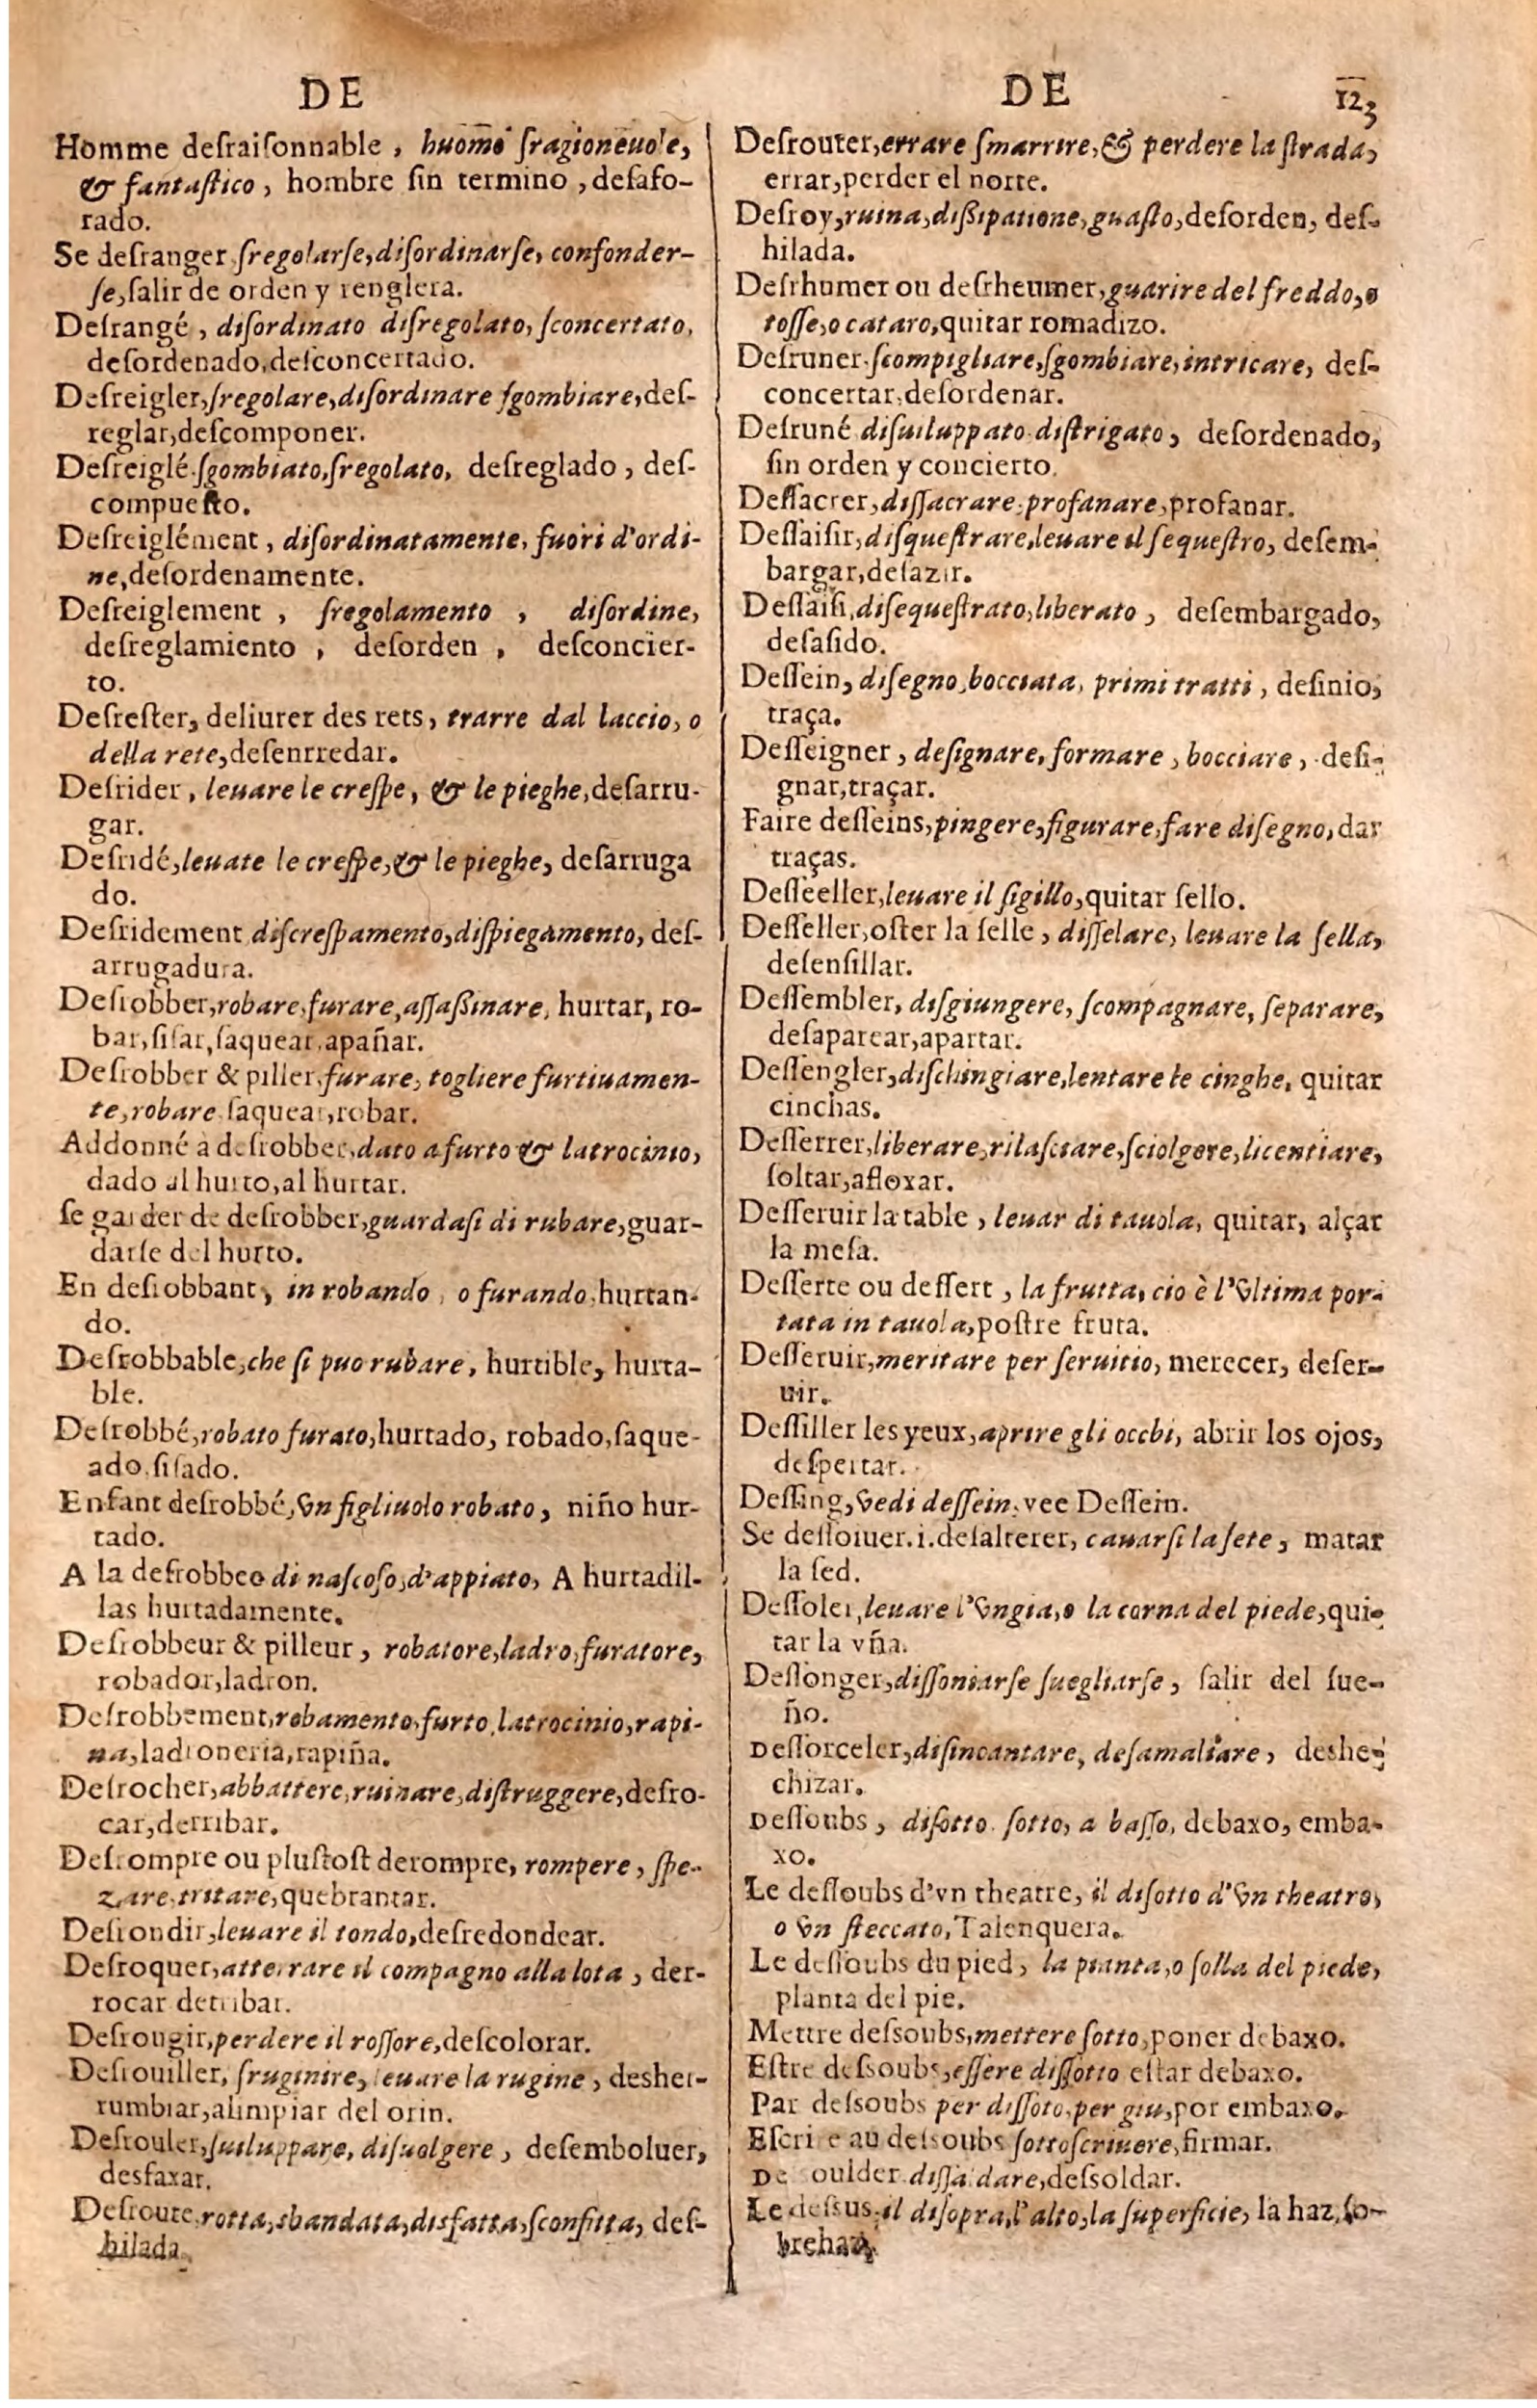 DE
Homme desraisonnable, huomo sragioneuole,
& fantastico, hombre sin termino, desafo-
rado.
Se desranger sregolarse, disordinarse, confonder-
se, salir de orden y renglera.
Desrangé, disordinato disregolato, sconcertato,
desordenado, desconcertado.
Desreigler, sregolare, disordinare sgombiare, des-
reglar, descomponer.
Desreiglé. sgombiato, sregolato, desreglado, des-
compuesto.
Desreiglément, disordinatamente, fuori d'ordi-
ne, desordenamente.
Desreiglement, sregolamento, disordine,
desreglamiento, desorden, desconcier-
to.
Desrester, deliurer des rets, trarre dal laccio, o
della rete, desenrredar.
Desrider, leuare le crespe, & le pieghe, desarru-
gar.
Desridé, leuate le crespe, & le pieghe, desarruga
do.
Desridement discrespamento, dispiegamento, des-
arrugadura.
Desrobber, robare, furare, assaßinare, hurtar, ro-
bar, sisar, saquear, apañar.
Desrobber & piller, furare, togliere furtiuamen-
te, robare saquear, robar.
Addonné a desrobber, dato a furto & latrocinio,
dado al hurto, al hurtar.
se garder de desrobber, guardasi di rubare, guar-
darse del hurto.
En desrobbant, in robando, o furando, hurtan-
do.
Desrobbable, che si puo rubare, hurtible, hurta-
ble.
Desrobbé, robato furato, hurtado, robado, saque-
ado, sisado.
Enfant desrobbé, vn figliuolo robato, niño hur-
tado.
A la desrobbeo di nascoso, d'appiato, A hurtadil-
las hurtadamente.
Desrobbeur & pilleur, robatore, ladro, furatore,
robador, ladron.
Desrobbement, robamento, furto, latrocinio, rapi-
na, ladroneria, rapiña.
Desrocher, abbattere, ruinare, distruggere, desro-
car, derribar.
Desrompre ou plustost derompre, rompere, spe-
zare, tritare, quebrantar.
Desrondir, leuare il tondo, desredondear.
Desroquer, atterrare il compagno alla lota, der-
rocar derribar.
Desrougir, perdere il rossore, descolorar.
Desrouiller, sruginire, leuare la rugine, desher-
rumbiar, alimpiar del orin.
Desrouler, suiluppare, disuolgere, desemboluer,
desfaxar.
Desroute, rotta, sbandata, disfatta, sconfitta, des-
hilada.
DE
123
Desrouter, errare smarrire, & perdere la strada,
errar, perder el norte.
Desroy, ruina, dißipatione, guasto, desorden, des-
hilada.
Desrhumer ou desrheumer, guarire del freddo, o
tosse, o cataro, quitar romadizo.
Desruner. scompigliare, sgombiare, intricare, des-
concertar, desordenar.
Desruné disuiluppato distrigato, desordenado,
sin orden y concierto.
Dessacrer, dissacrare, profanare, profanar.
Dessaisir, disquestrare, leuare il sequestro, desem-
bargar, desazir.
Dessaisi, disequestrato, liberato, desembargado,
desasido.
Dessein, disegno, bocciata, primi tratti, desinio,
traça.
Desseigner, designare, formare, bocciare, desi-
gnar, traçar.
Faire desseins, pingere, figurare, fare disegno, dar
traças.
Desseeller, leuare il sigillo, quitar sello.
Desseller, oster la selle, disselare, leuare la sella,
desensillar.
Dessembler, disgiungere, scompagnare, separare,
desaparear, apartar.
Dessengler, dischingiare, lentare le cinghe, quitar
cinchas.
Desserrer, liberare, rilasciare, sciolgere, licentiare,
soltar, afloxar.
Desseruir la table, leuar di tauola, quitar, alçar
la mesa.
Desserte ou dessert, la frutta, cio è l'vltima por-
tata in tauola, postre fruta.
Desseruir, meritare per seruitio, merecer, deser-
uir.
Dessiller les yeux, aprire gli occhi, abrir los ojos,
despertar.
Dessing, vedi dessein, vee Dessein.
Se dessoiuer. i. desalterer, cauarsi la sete, matar
la sed.
Dessoler, leuare l'vngia, o la corna del piede, qui-
tar la vña.
Dessonger, dissoniarse suegliarse, salir del sue-
ño.
Dessorceler, disincantare, desamaliare, deshe-
chizar.
Dessoubs, disotto sotto, a basso, debaxo, emba-
xo.
Le dessoubs d'vn theatre, il disotto d'vn theatro,
o vn steccato, Talenquera.
Le dessoubs du pied, la pianta, o solla del piede,
planta del pie.
Mettre dessoubs, mettere sotto, poner debaxo.
Estre dessoubs, essere dissotto estar debaxo.
Par dessoubs per dissoto, per giu, por embaxo.
Escrire au dessoubs sottoscriuere, firmar.
De oulder dissa dare, dessoldar.
Le dessus, il disopra, l'alto, la superficie, la haz, so-
brehaz.